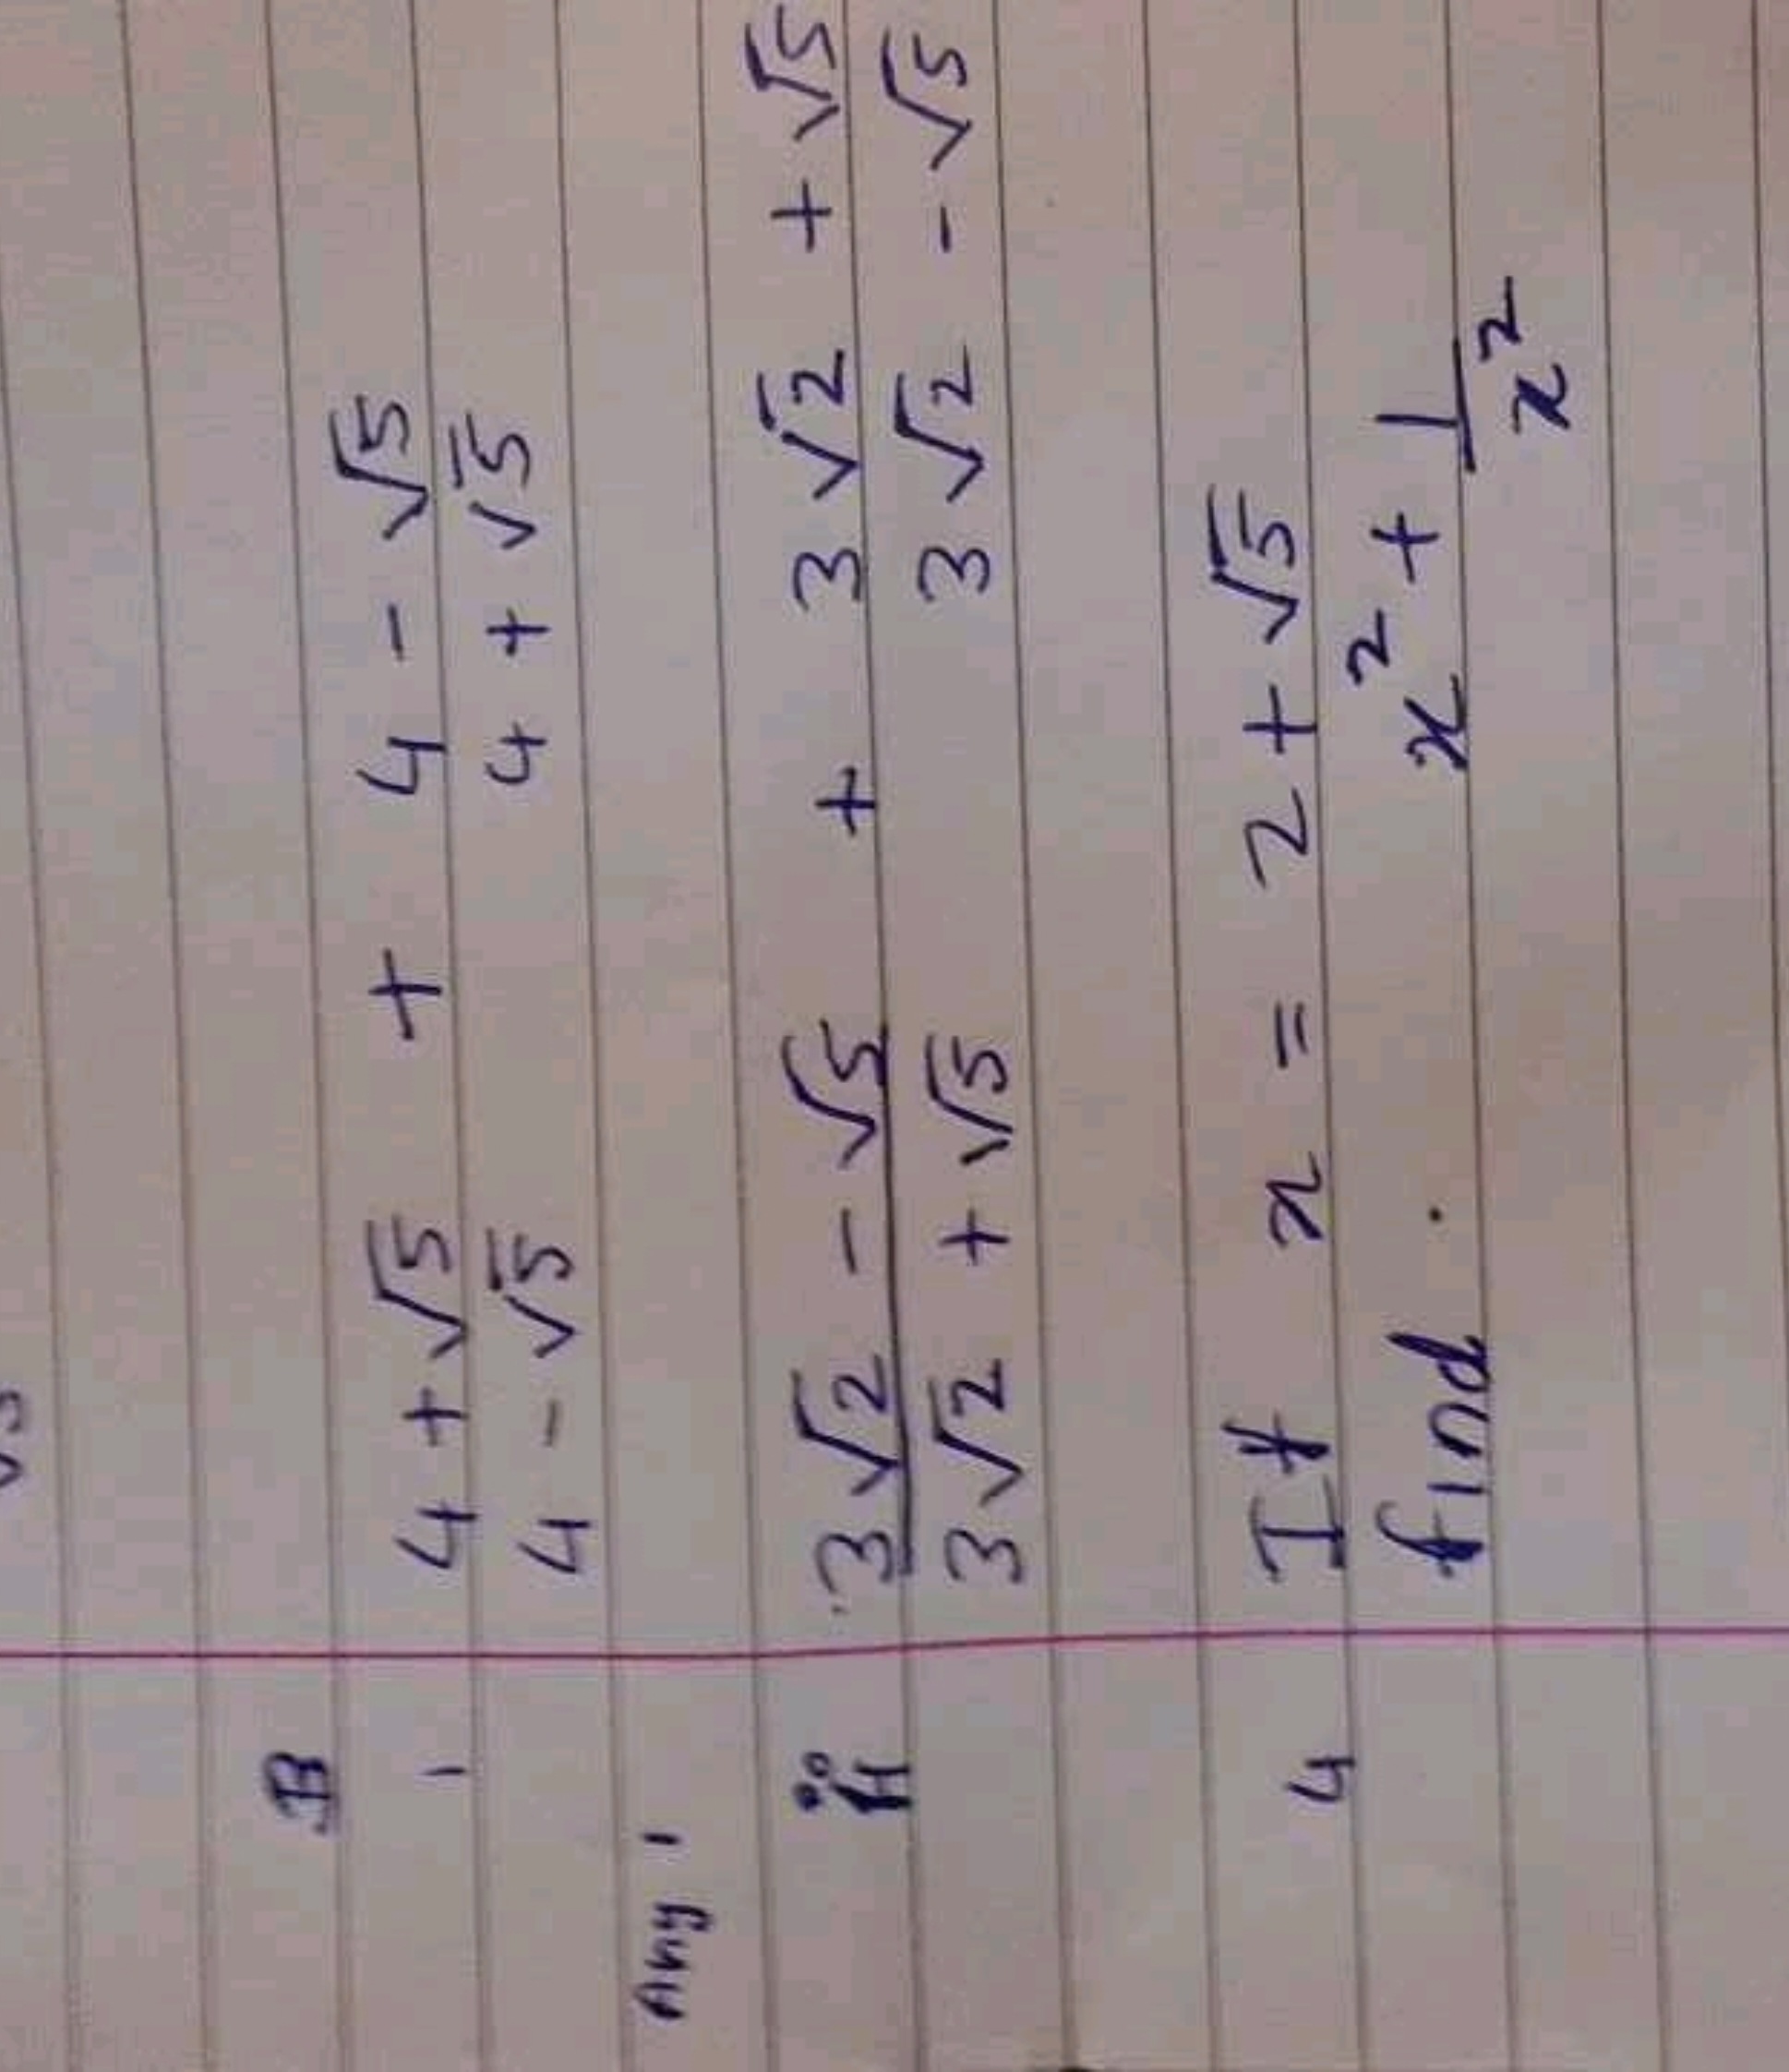 B
1 4 + √5 + 4 - √5
4 - √5 4 + √5
Any 1
ii 3√2 - √5 + 3√2 + √5
3√2 + √5 3√2 - √5
4 If x = 2 + √5
find x² + 1/x²